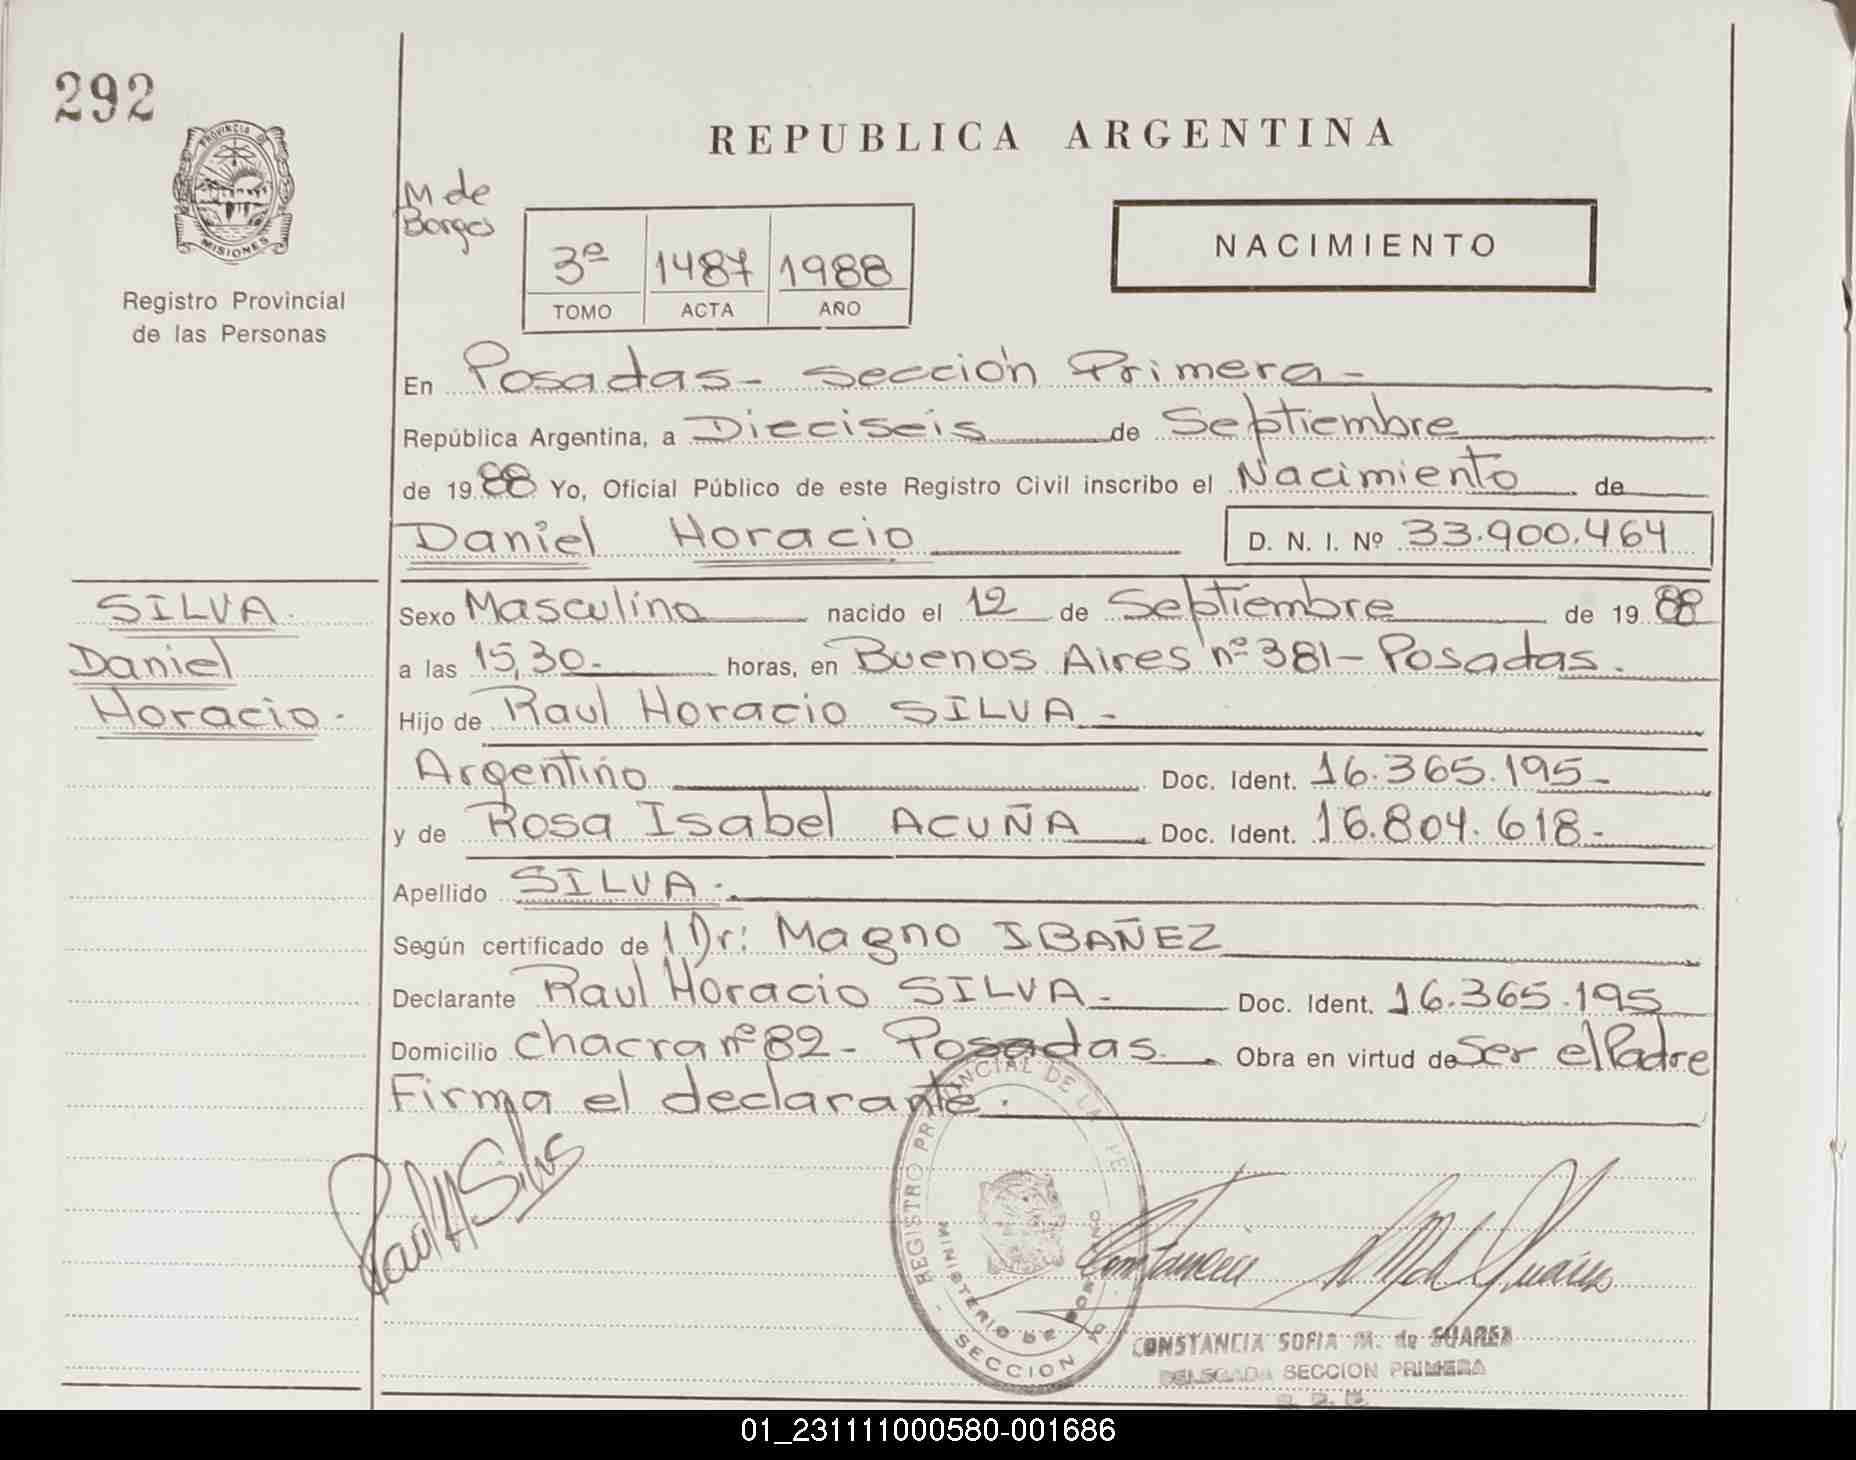 292
PROVINCIA DE
MISIONES
Registro Provincial
de las Personas
REPUBLICA ARGENTINA
M de
Borges
3º 1487 1988
TOMO ACTA AÑO
NACIMIENTO
En Posadas- sección Primera-
República Argentina, a Dieciseis de Septiembre
de 1988 Yo, Oficial Público de este Registro Civil inscribo el Nacimiento de
Daniel Horacio D. N. I. Nº 33.900.464
SILVA.
Daniel
Horacio.-
Sexo Masculino nacido el 12 de Septiembre de 1988
a las 15,30- horas, en Buenos Aires nº 381- Posadas.
Hijo de Raul Horacio SILVA-
Argentino Doc. Ident. 16.365.195-
y de Rosa Isabel ACUÑA Doc. Ident. 16.804.618-
Apellido SILVA.-
Según certificado de Dr: Magno IBAÑEZ
Declarante Raul Horacio SILVA- Doc. Ident. 16.365.195
Domicilio chacra nº 82- Posadas. Obra en virtud de Ser el Padre
Firma el declarante.
Raul H Silva
REGISTRO PROVINCIAL DE LA PE
MINISTERIO DE GOBIERNO
SECCION 1a
CONSTANCIA SOFIA M. de SUAREZ
DELEGADA SECCION PRIMERA
01_231111000580-001686